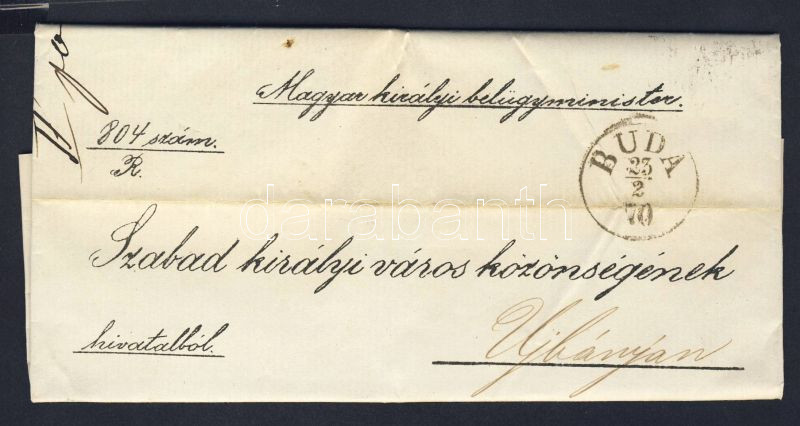 Magyar királyi belügyminister.
804 szám.
R.
BUDA
23
2
70
Szabad királyi város közönségének
hivatalból.
Ujbányán
darabanth